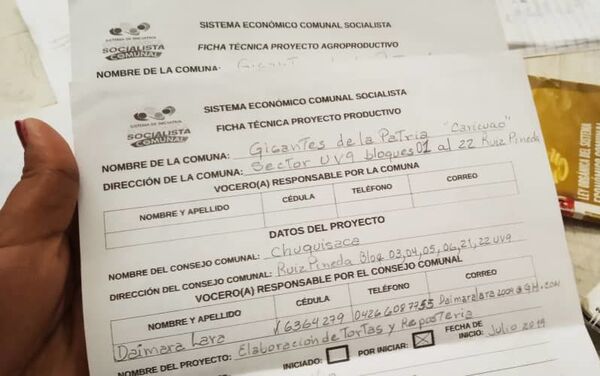 SISTEMA ECONÓMICO COMUNAL SOCIALISTA
SOCIALISTA
COMUNAL
FICHA TÉCNICA PROYECTO AGROPRODUCTIVO
NOMBRE DE LA COMUNA:
SISTEMA ECONÓMICO COMUNAL SOCIALISTA
SOCIALISTA
COMUNAL
FICHA TÉCNICA PROYECTO PRODUCTIVO
NOMBRE DE LA COMUNA: Gigantes de la Patria "Caricuao"
DIRECCIÓN DE LA COMUNA: Sector UV9 bloques 01 al 22 Ruiz Pineda
VOCERO(A) RESPONSABLE POR LA COMUNA
NOMBRE Y APELLIDO CÉDULA TELÉFONO CORREO
DATOS DEL PROYECTO
NOMBRE DEL CONSEJO COMUNAL: Chuquisaca
DIRECCIÓN DEL CONSEJO COMUNAL: Ruiz Pineda Bloq 03,04,05,06,21,22 UV9
VOCERO(A) RESPONSABLE POR EL CONSEJO COMUNAL
NOMBRE Y APELLIDO CÉDULA TELÉFONO CORREO
Daimara Lara 16364279
NOMBRE DEL PROYECTO: Elaboración de Tortas y Repostería
INICIADO: POR INICIAR: FECHA DE INICIO: Julio 2019
LEY ORGÁNICA DEL SISTEMA
ECONÓMICO COMUNAL